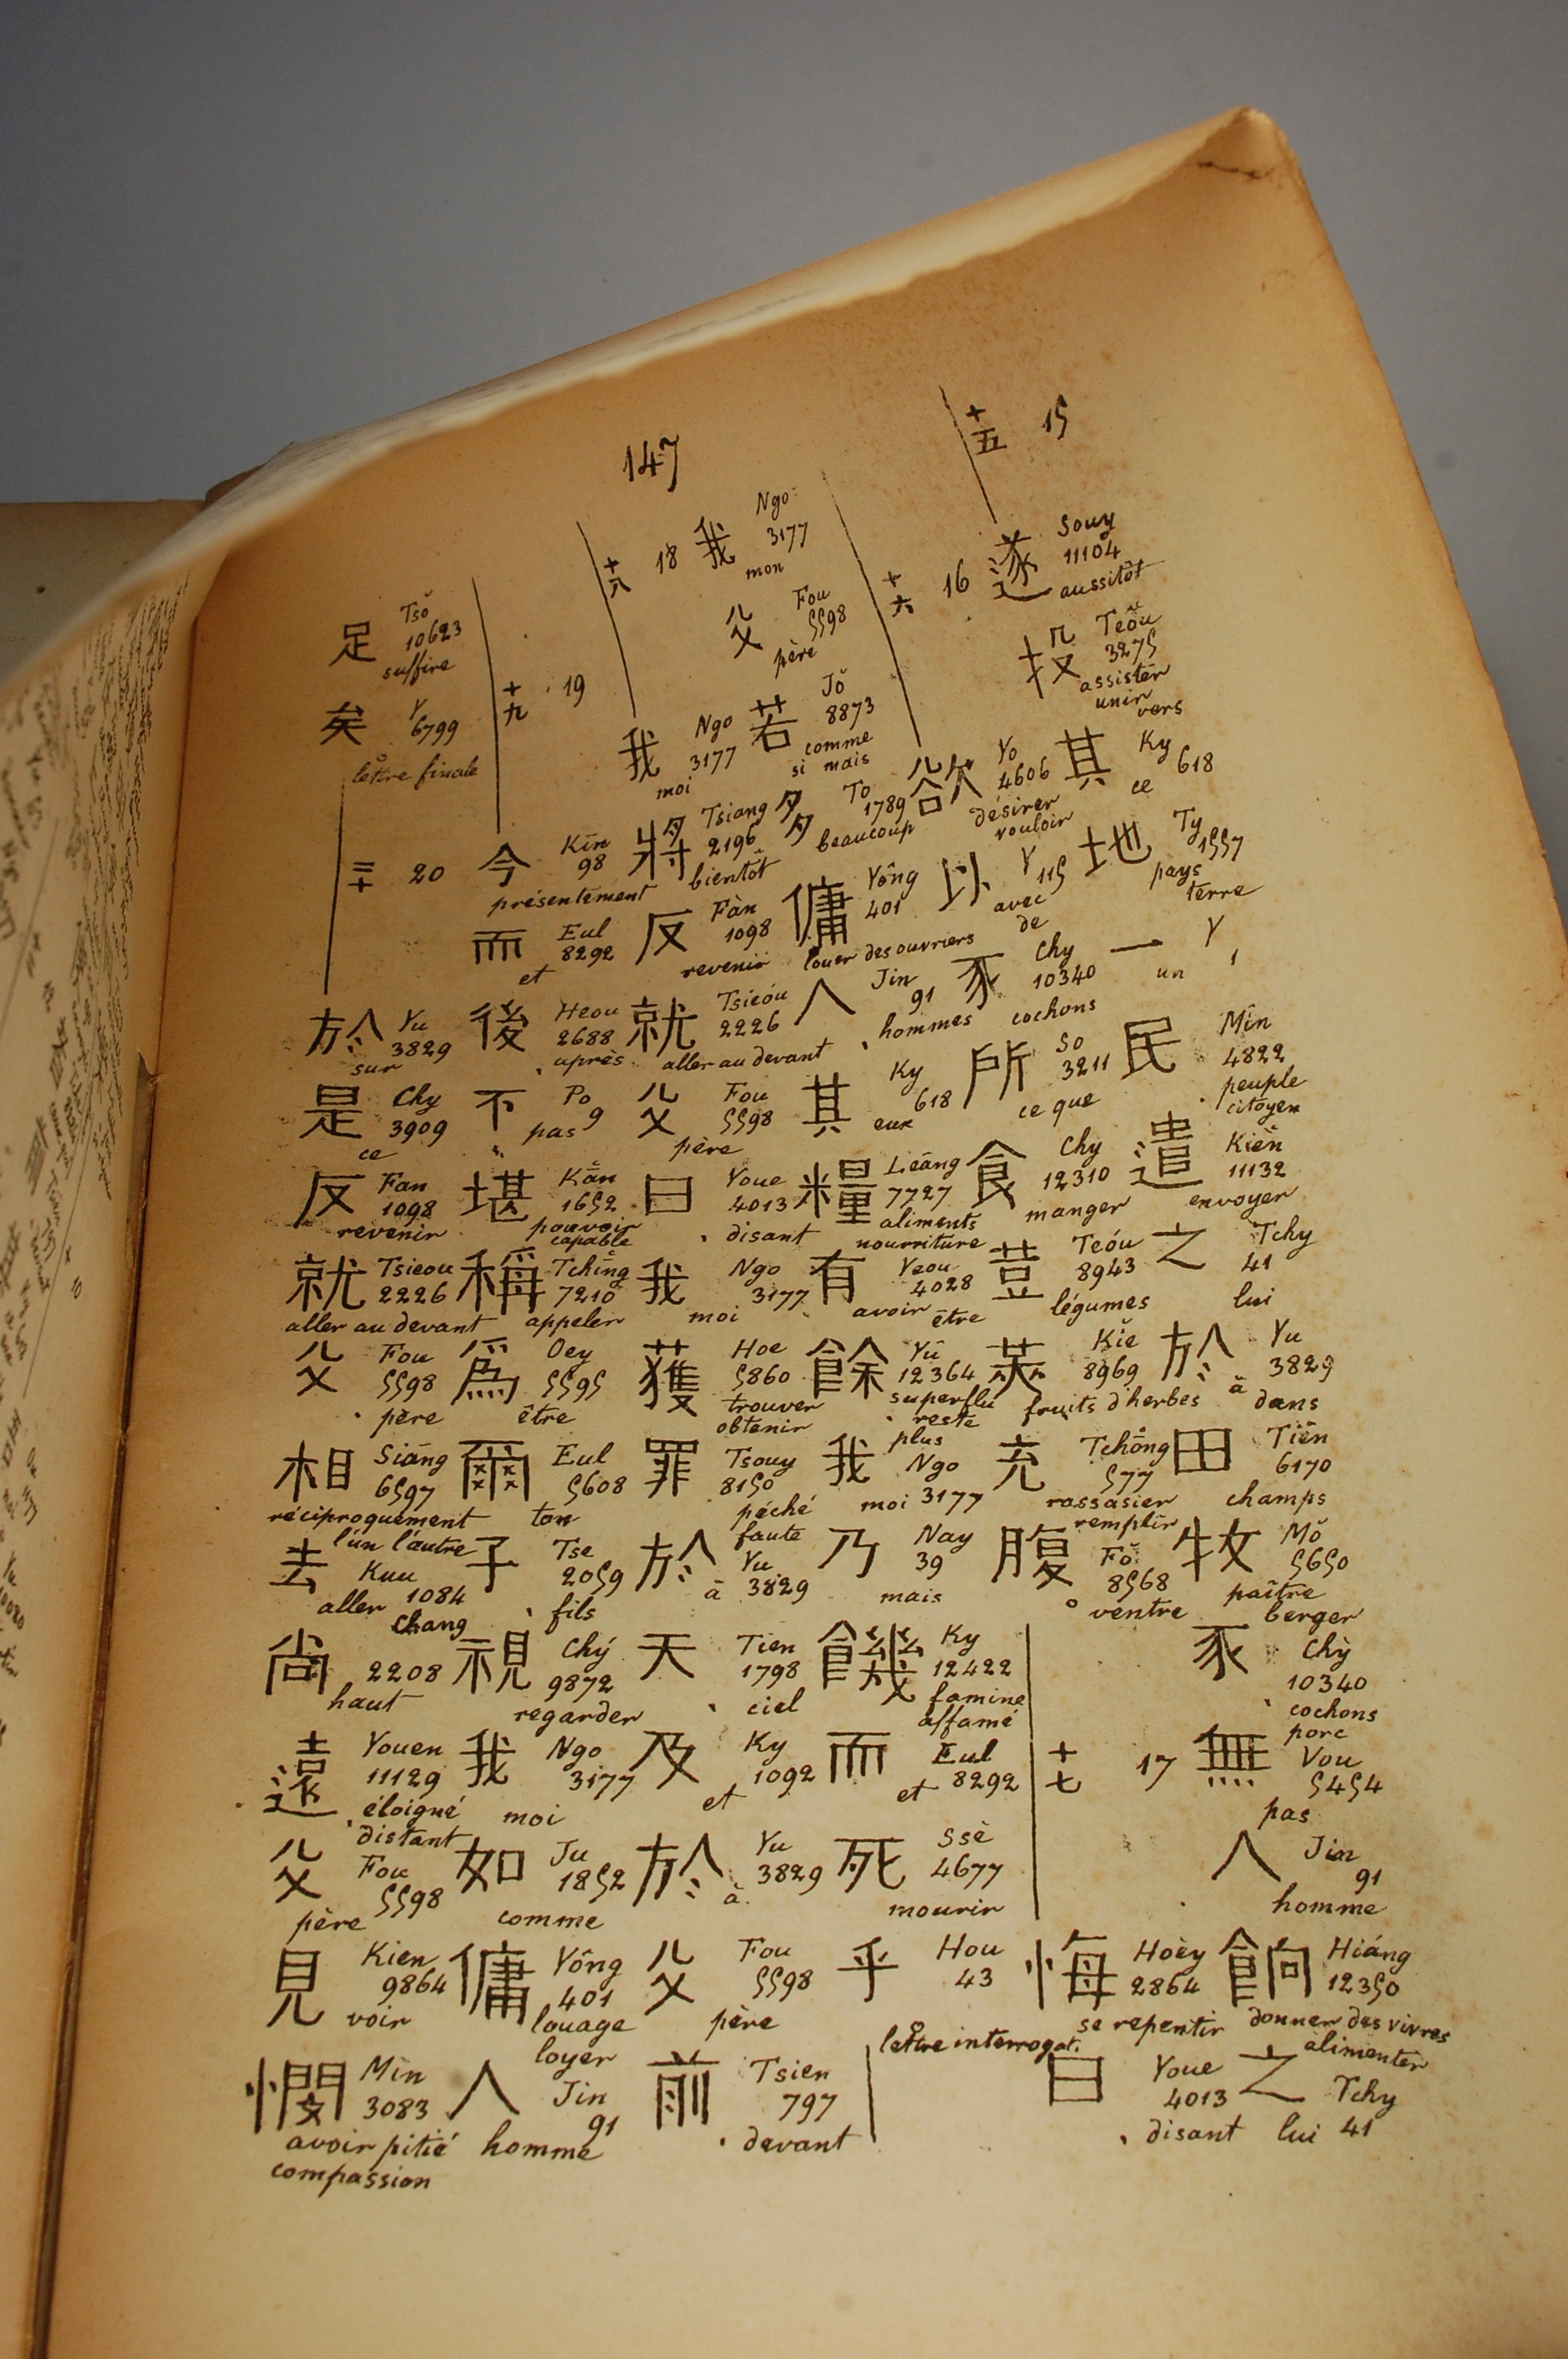 147
十五 15
遂 Souy 11104 aussitôt
投 Teŏu 3275 assister unir vers
其 Ky 618 ce
地 Ty 1557 pays terre
一 Y 1 un
民 Mîn 4822 peuple citoyen
遣 Kièn 11132 envoyer
之 Tchy 41 lui
於 Yu 3829 à dans
田 Tiên 6170 champs
牧 Mŏ 5650 paître berger
豕 Chỳ 10340 cochons porc
無 Vou 5454 pas
人 Jin 91 homme
餉 Hiáng 12350 donner des vivres alimenter
之 Tchy 41 lui
十六 16
欲 Yo 4606 désirer vouloir
以 Y 115 avec de
豕 Chy 10340 cochons
所 So 3211 ce que
食 Chy 12310 manger
荳 Teóu 8943 légumes
莢 Kiĕ 8969 fruits d'herbes
充 Tchōng 577 rassasier remplir
腹 Fŏ 8568 ventre
十七 17
悔 Hoèy 2864 se repentir
曰 Youe 4013 disant
我 Ngo 3177 mon
父 Fou 5598 père
若 Jŏ 8873 comme si mais
多 To 1789 beaucoup
傭 Yông 401 louer des ouvriers
人 Jin 91 hommes
其 Ky 618 eux
糧 Leâng 7727 aliments nourriture
有 Yeou 4028 avoir être
餘 Yû 12364 superflu reste plus
我 Ngo 3177 moi
乃 Nay 39 mais
饑 Ky 12422 famine affamé
而 Eul 8292 et
死 Ssè 4677 mourir
乎 Hou 43 lettre interrogat.
十八 18
我 Ngo 3177 moi
將 Tsiang 2196 bientôt
反 Fàn 1098 revenir
就 Tsieóu 2226 aller au devant
父 Fou 5598 père
曰 Youe 4013 disant
我 Ngo 3177 moi
獲 Hoe 5860 trouver obtenir
罪 Tsouy 8150 péché faute
於 Yu 3829 à
天 Tien 1798 ciel
及 Ky 1092 et
於 Yu 3829 à
父 Fou 5598 père
前 Tsien 797 devant
十九 19
今 Kīn 98 présentement
而 Eul 8292 et
後 Heou 2688 après
不 Po 9 pas
堪 Kăn 1652 pouvoir capable
稱 Tchīng 7210 appeler
爲 Oey 5595 être
爾 Eul 5608 ton
子 Tse 2059 fils
視 Chý 9872 regarder
我 Ngo 3177 moi
如 Ju 1852 comme
傭 Yông 401 louage loyer
人 Jin 91 homme
足 Tsŏ 10623 suffire
矣 Y 6799 lettre finale
二十 20
於 Yu 3829 sur
是 Chy 3909 ce
反 Fan 1098 revenir
就 Tsieou 2226 aller au devant
父 Fou 5598 père
相 Siāng 6597 réciproquement l'un l'autre
去 Kuu 1084 aller
尚 Chang 2208 haut
遠 Youen 11129 éloigné distant
父 Fou 5598 père
見 Kien 9864 voir
憫 Mìn 3083 avoir pitié compassion